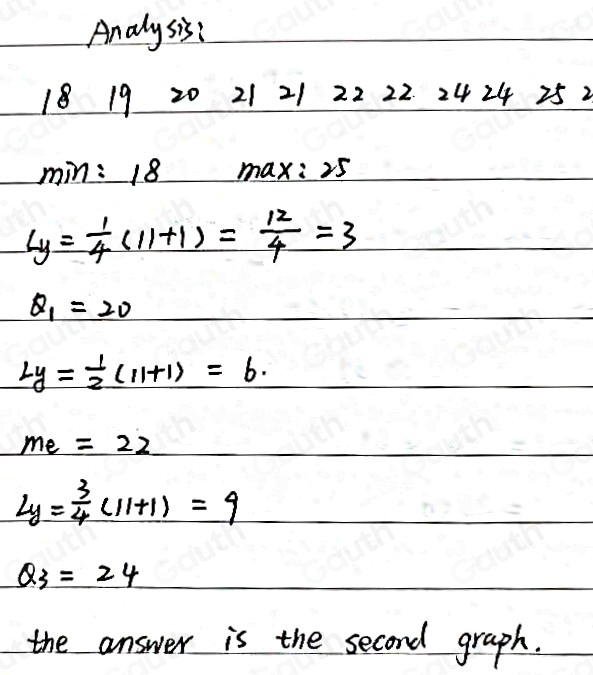 Analysis:
18 19 20 21 21 22 22 24 24 25 2
min: 18 max: 25
Ly = 1/4 (11+1) = 12/4 = 3
Q₁ = 20
Ly = 1/2 (11+1) = 6.
me = 22
Ly = 3/4 (11+1) = 9
Q3 = 24
the answer is the second graph.